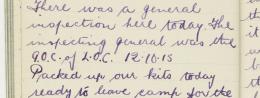 There was a general
inspection here today. The
inspecting general was the
G.O.C. of L.O.C. 12-10-15
Packed up our kits today
ready to leave camp for the